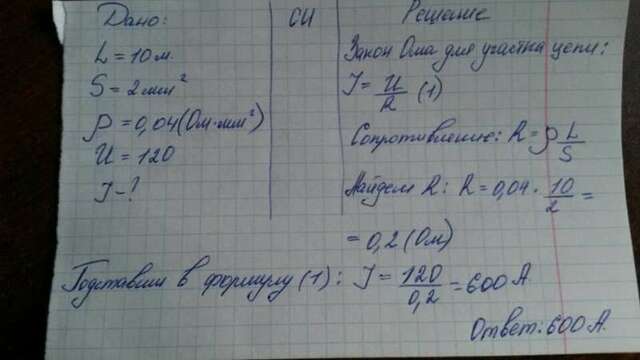 Дано:
L = 10 м.
S = 2 мм²
ρ = 0,04 (Ом·мм²)
U = 120
I - ?
СИ
Решение
Закон Ома для участка цепи:
I = U/R (1)
Сопротивление: R = ρ L/S
Найдем R: R = 0,04 · 10/2 =
= 0,2 (Ом)
Подставим в формулу (1): I = 120/0,2 = 600 А
Ответ: 600 А.